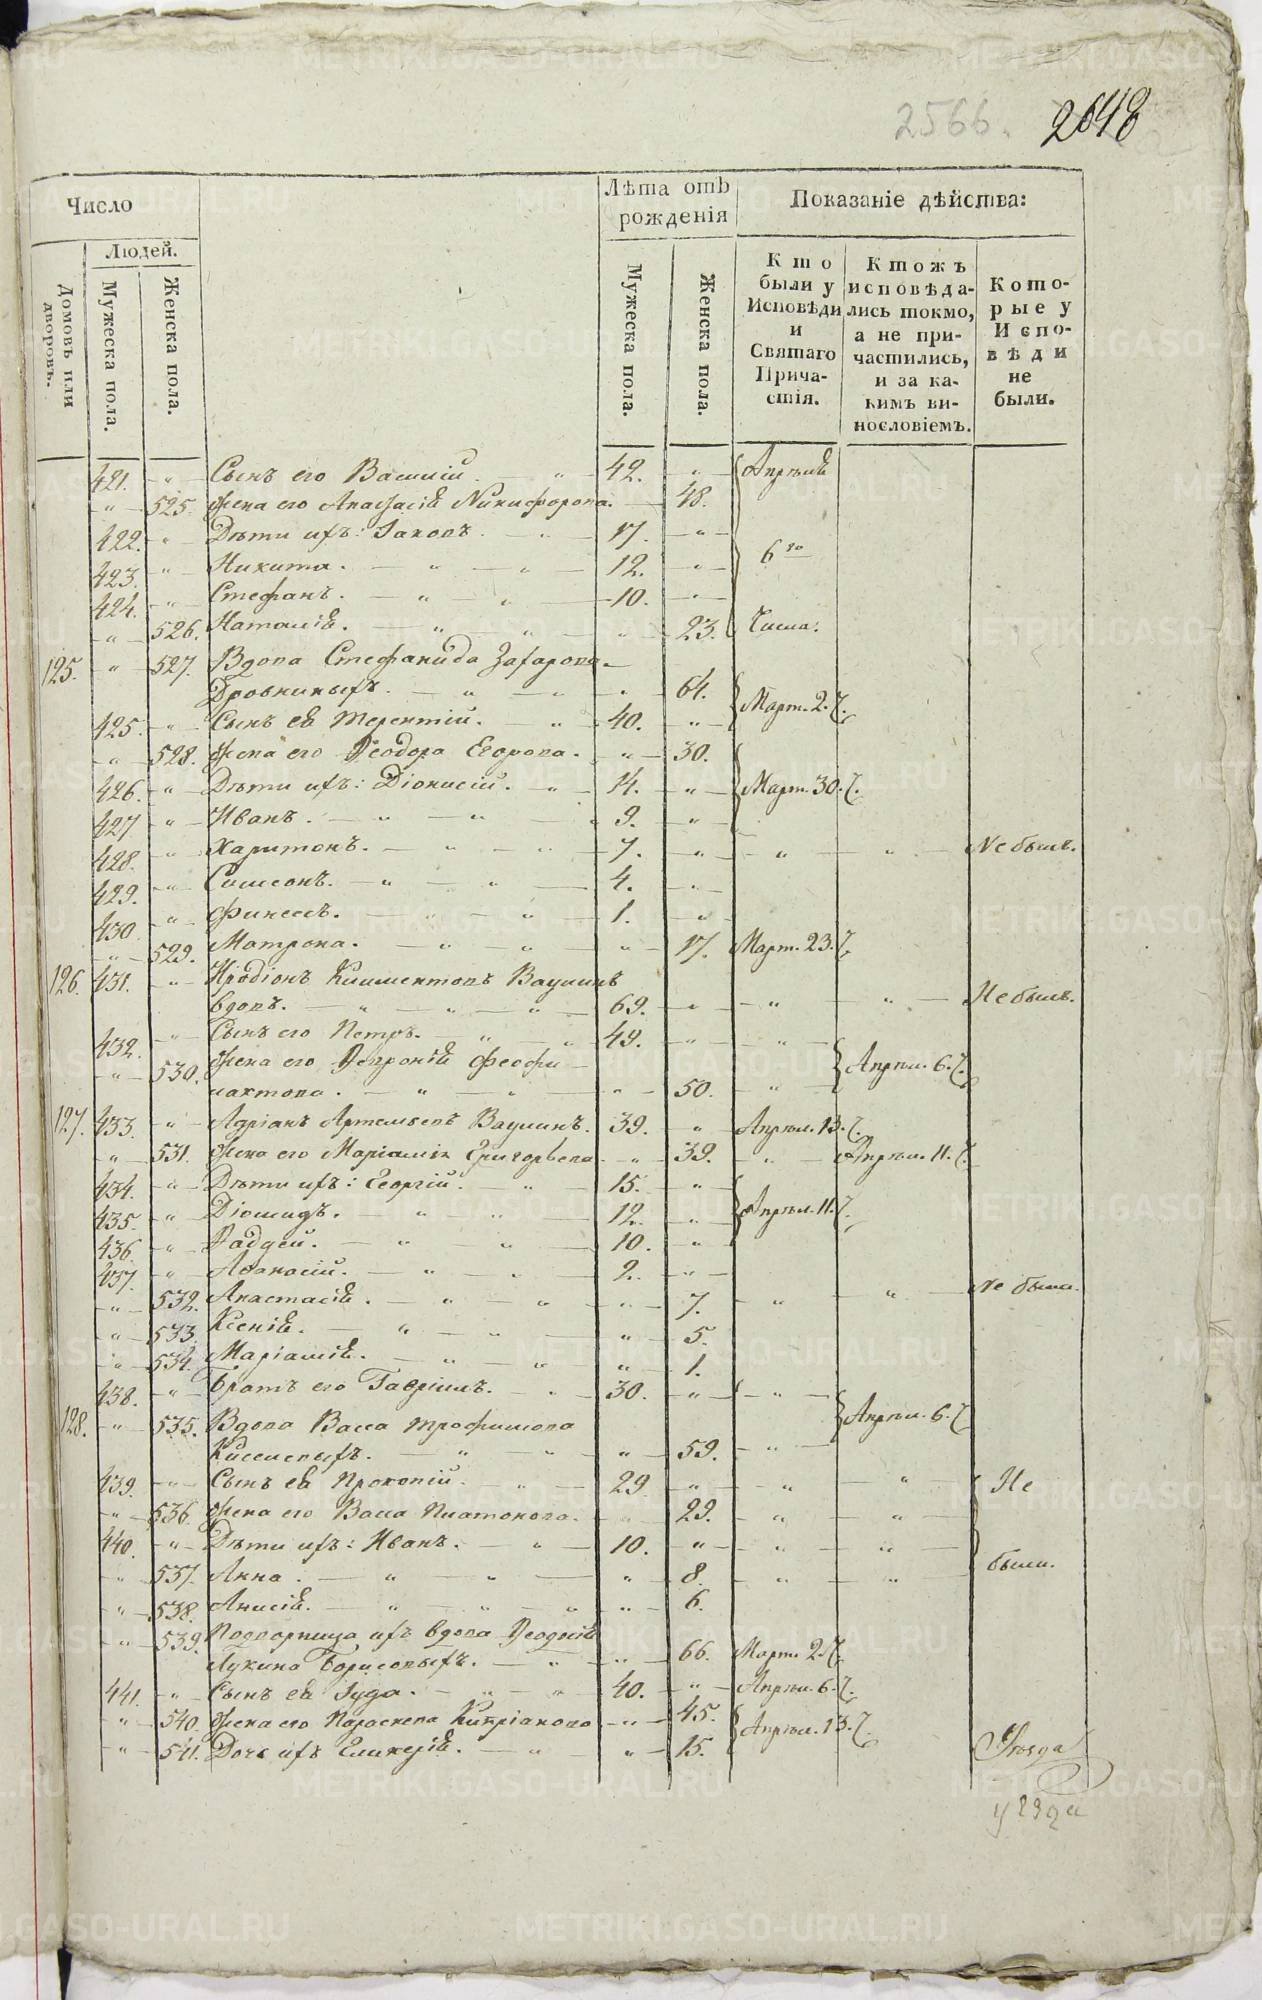 2566. 2648
Число
Лѣта отъ рожденія
Показаніе дѣйства:
Людей.
Домовъ или дворовъ.
Мужеска пола.
Женска пола.
Мужеска пола.
Женска пола.
Кто были у Исповѣди и Святаго Причастія.
Ктожъ исповѣдались токмо, а не причастились, и за какимъ винословіемъ.
Которые у Исповѣди не были.
421. " Сынъ его Василій " 42. " Апрѣля
" 525. Жена его Анастасія Никифорова. 48.
422. " Дѣти ихъ: Іаковъ. " 17. "
423. " Никита. " " 12. " 6го
424. " Стефанъ. " " 10. "
" 526. Наталія. " " " 23. Числа.
125. " 527. Вдова Стефанида Захарова
Дровниныхъ. " " " 64. Март. 2.
425. " Сынъ ея Терентій. " 40. "
" 528. Жена его Ѳеодора Егорова. " 30.
426. " Дѣти ихъ: Діонисій. " 14. " Март. 30.
427 " Иванъ. " " 9. "
428. " Харитонъ. " " 7. " " " Не были.
429. " Симеонъ. " " 4. "
430 " Финеесъ. " " 1. "
" 529. Матрона. " " " 17. Март. 23.
126. 431. " Иродіонъ Климентовъ Ваулинъ
вдовъ. " " " 69. " " " Не былъ.
432. " Сынъ его Петръ. " " 49. " "
" 530. Жена его Ѳевронія Феофи-
лактова. " " " 50. " Апрѣл. 6.
127. 433. " Адріанъ Артемьевъ Ваулинъ. 39. " Апрѣл. 13.
" 531. Жена его Маріамія Григорьева " 39. " Апрѣл. 11.
434. " Дѣти ихъ: Георгій. " 15. "
435. " Діомидъ. " " 12. " Апрѣл. 11.
436 " Ѳадѣей. " " 10. "
437. " Аѳанасій. " " 2. "
" 532. Анастасія. " " " 7. " " Не были.
" 533. Ксенія. " " " 5.
" 534. Маріамія. " " " 1.
438. " Братъ его Гавріилъ. " 30. " "
128. " 535. Вдова Васса Трофимова Апрѣл. 6.
Киселевыхъ. " " " 59. "
439. " Сынъ ея Прокопій. " 29 " " " Не
" 536. Жена его Васса Платонова. " 29. " "
440. " Дѣти ихъ: Иванъ. " 10. " " "
" 537. Анна. " " " 8. " " были.
" 538. Анисія. " " " " 6.
" 539. Подворница ихъ вдова Ѳеодосія
Лукина Борисовыхъ. " " 66. Март. 2.
441. " Сынъ ея Іуда. " " 40. " Апрѣл. 6.
" 540. Жена его Параскева Кипріанова " 45. Апрѣл. 13.
" 541. Дочь ихъ Гликерія. " " 15.
Уѣзда
уѣзда